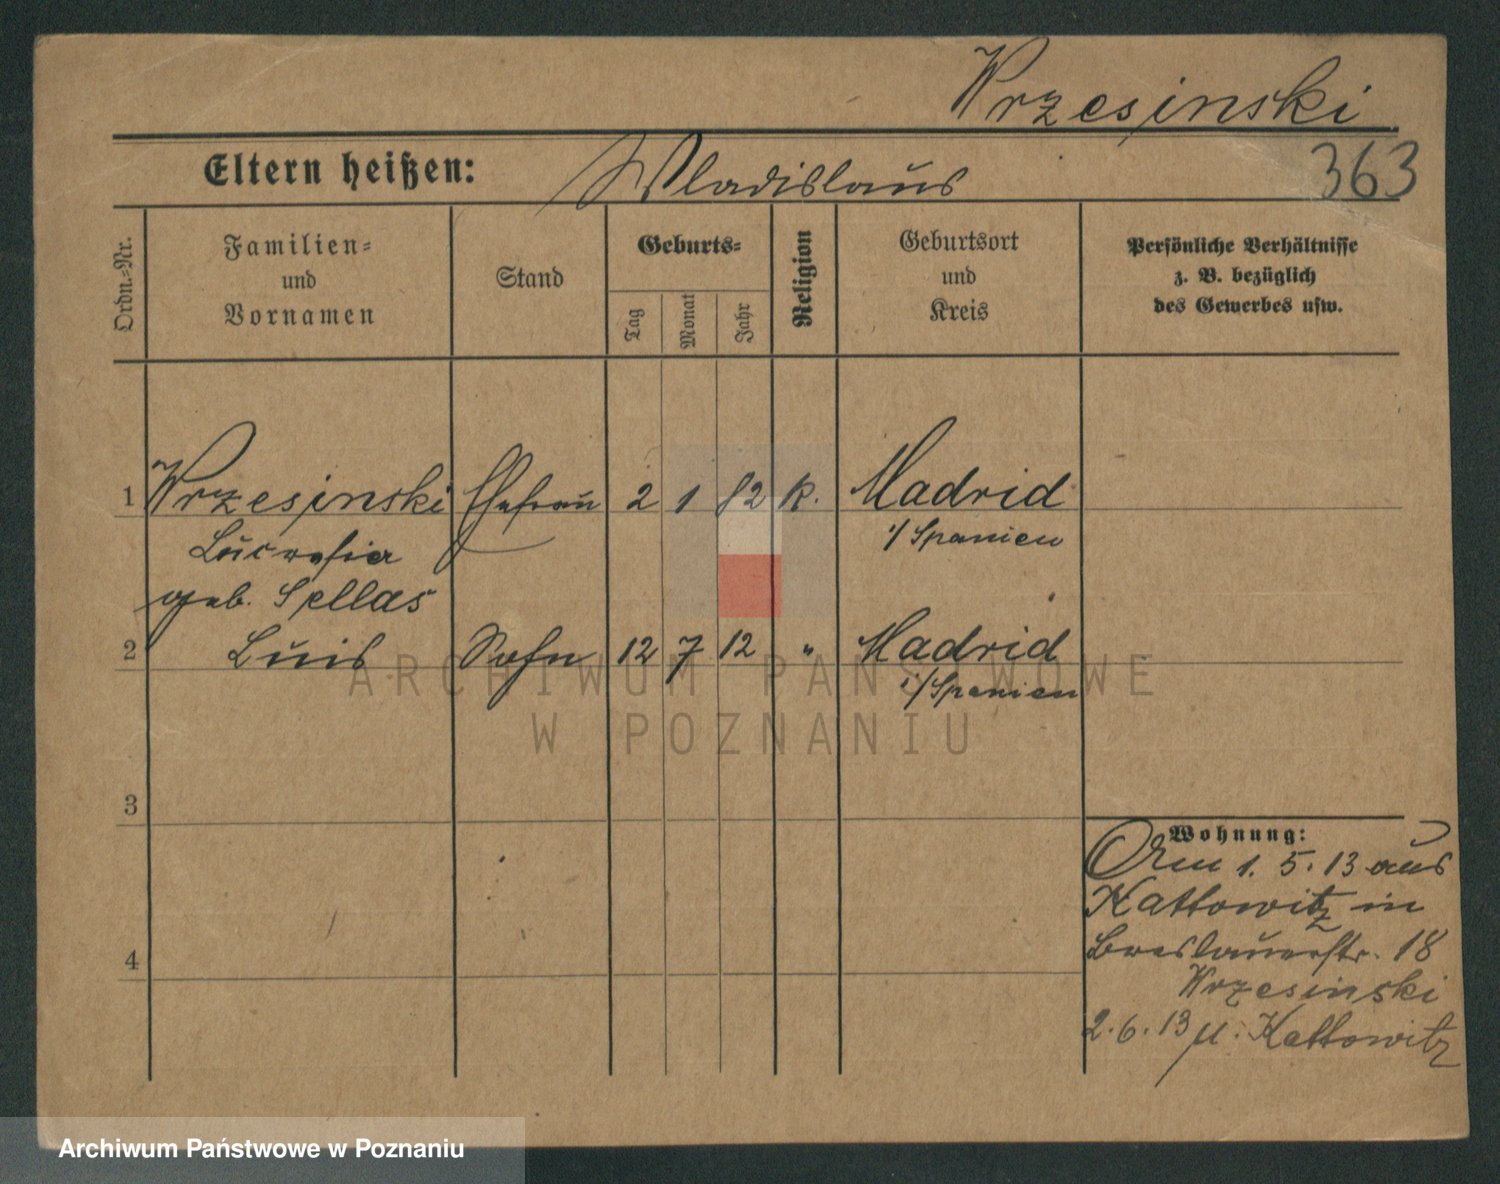 Wrzesinski
Eltern heißen: Wladislaus 363
Ordn.-Nr.
Familien-
und
Vornamen
Stand
Geburts-
Tag
Monat
Jahr
Religion
Geburtsort
und
Kreis
Persönliche Verhältnisse
z. B. bezüglich
des Gewerbes usw.
1 Wrzesinski Ehefrau 2 1 82 k. Madrid
i/Spanien
Lucresia
geb. Sellas
2 Luis Sohn 12 7 12 " Madrid
i/Spanien
ARCHIWUM PAŃSTWOWE
W POZNANIU
3
4
Wohnung:
Am 1. 5. 13 aus
Kattowitz in
Breslauerstr. 18
Wrzesinski
2. 6. 13 n. Kattowitz
Archiwum Państwowe w Poznaniu